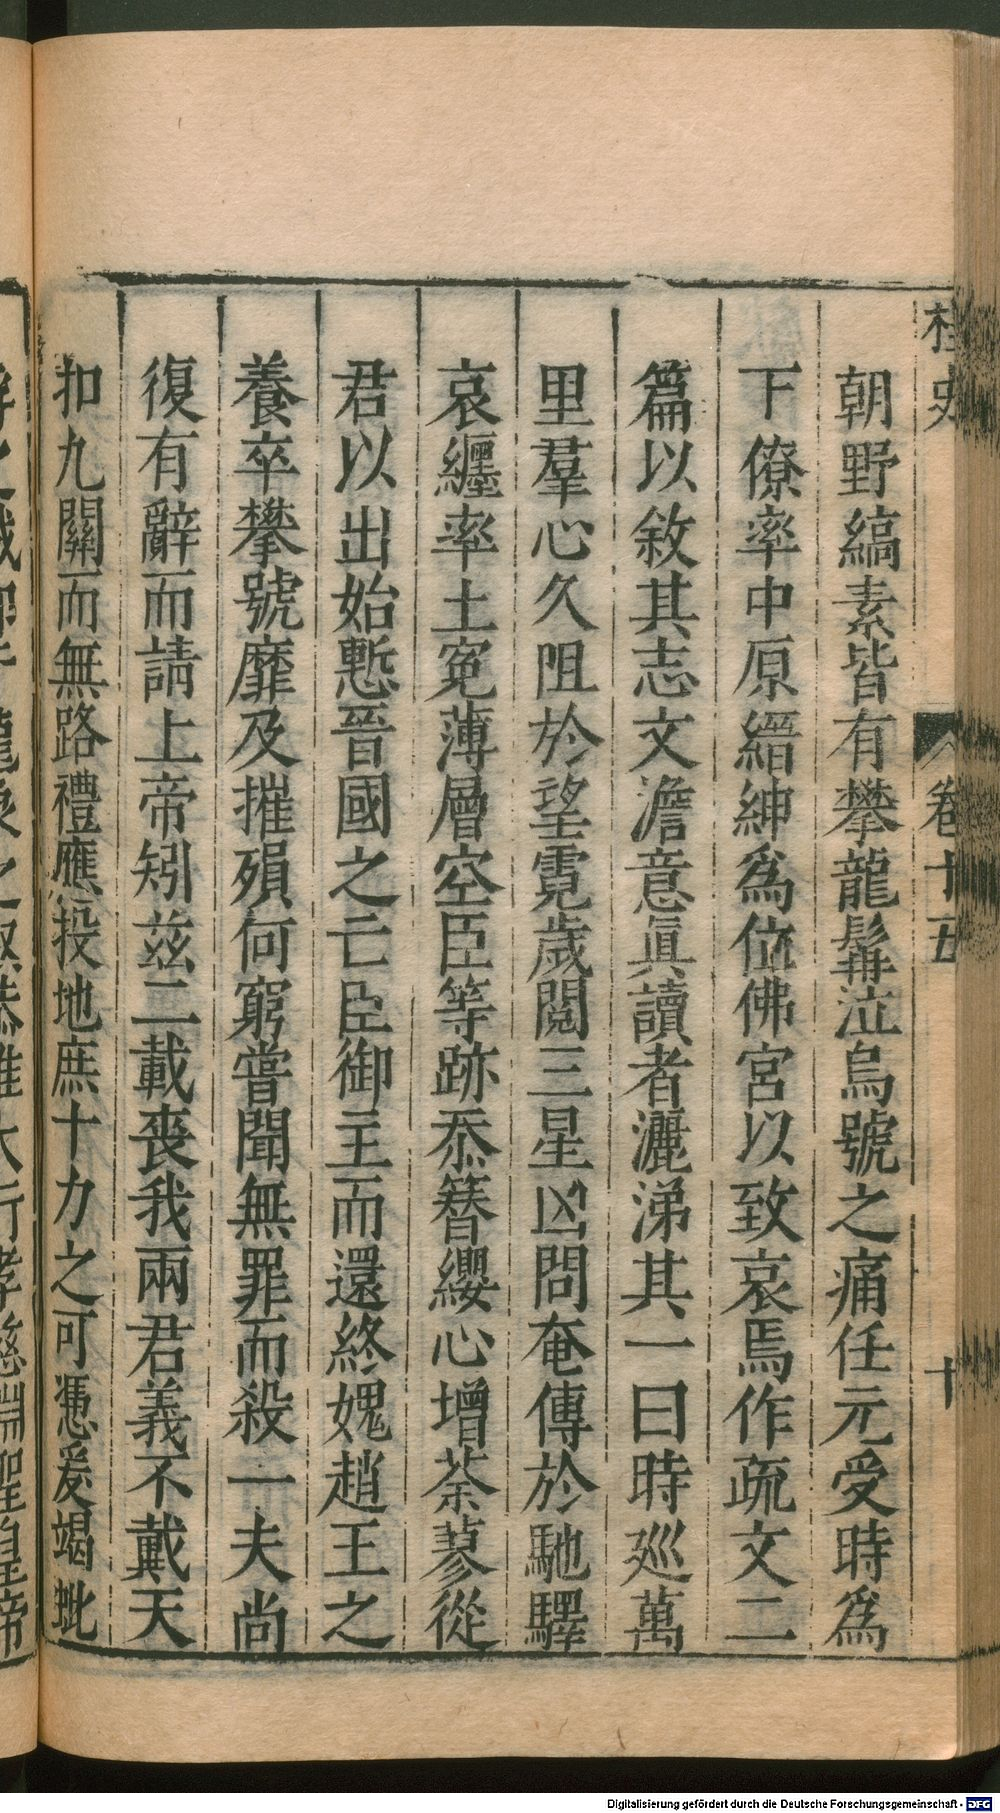 桯史
卷十五
十
朝野縞素皆有攀龍髯泣烏號之痛任元受時爲
下僚率中原縉紳爲位佛宮以致哀焉作疏文二
篇以敘其志文澹意眞讀者灑涕其一曰時廵萬
里羣心久阻於望霓歲閲三星凶問奄傳於馳驛
哀纏率土寃薄層空臣等跡忝簪纓心增荼蓼從
君以出始慙晉國之亡臣御主而還終媿趙王之
養卒攀號靡及摧殞何窮嘗聞無罪而殺一夫尚
復有辭而請上帝矧兹二載喪我兩君義不戴天
扣九關而無路禮應投地庶十力之可憑爰竭虵
龍象之
大行孝慈淵聖皇帝
Digitalisierung gefördert durch die Deutsche Forschungsgemeinschaft - DFG